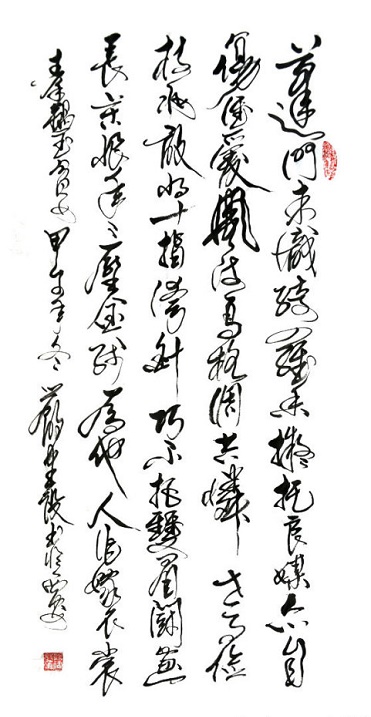 蓬門未識綺羅香擬托良媒亦自
傷誰愛風流高格調共憐時世儉
梳妝敢將十指誇針巧不把雙眉鬥畫
長苦恨年々壓金線為他人作嫁衣裳
秦韜玉貧女 甲午年冬